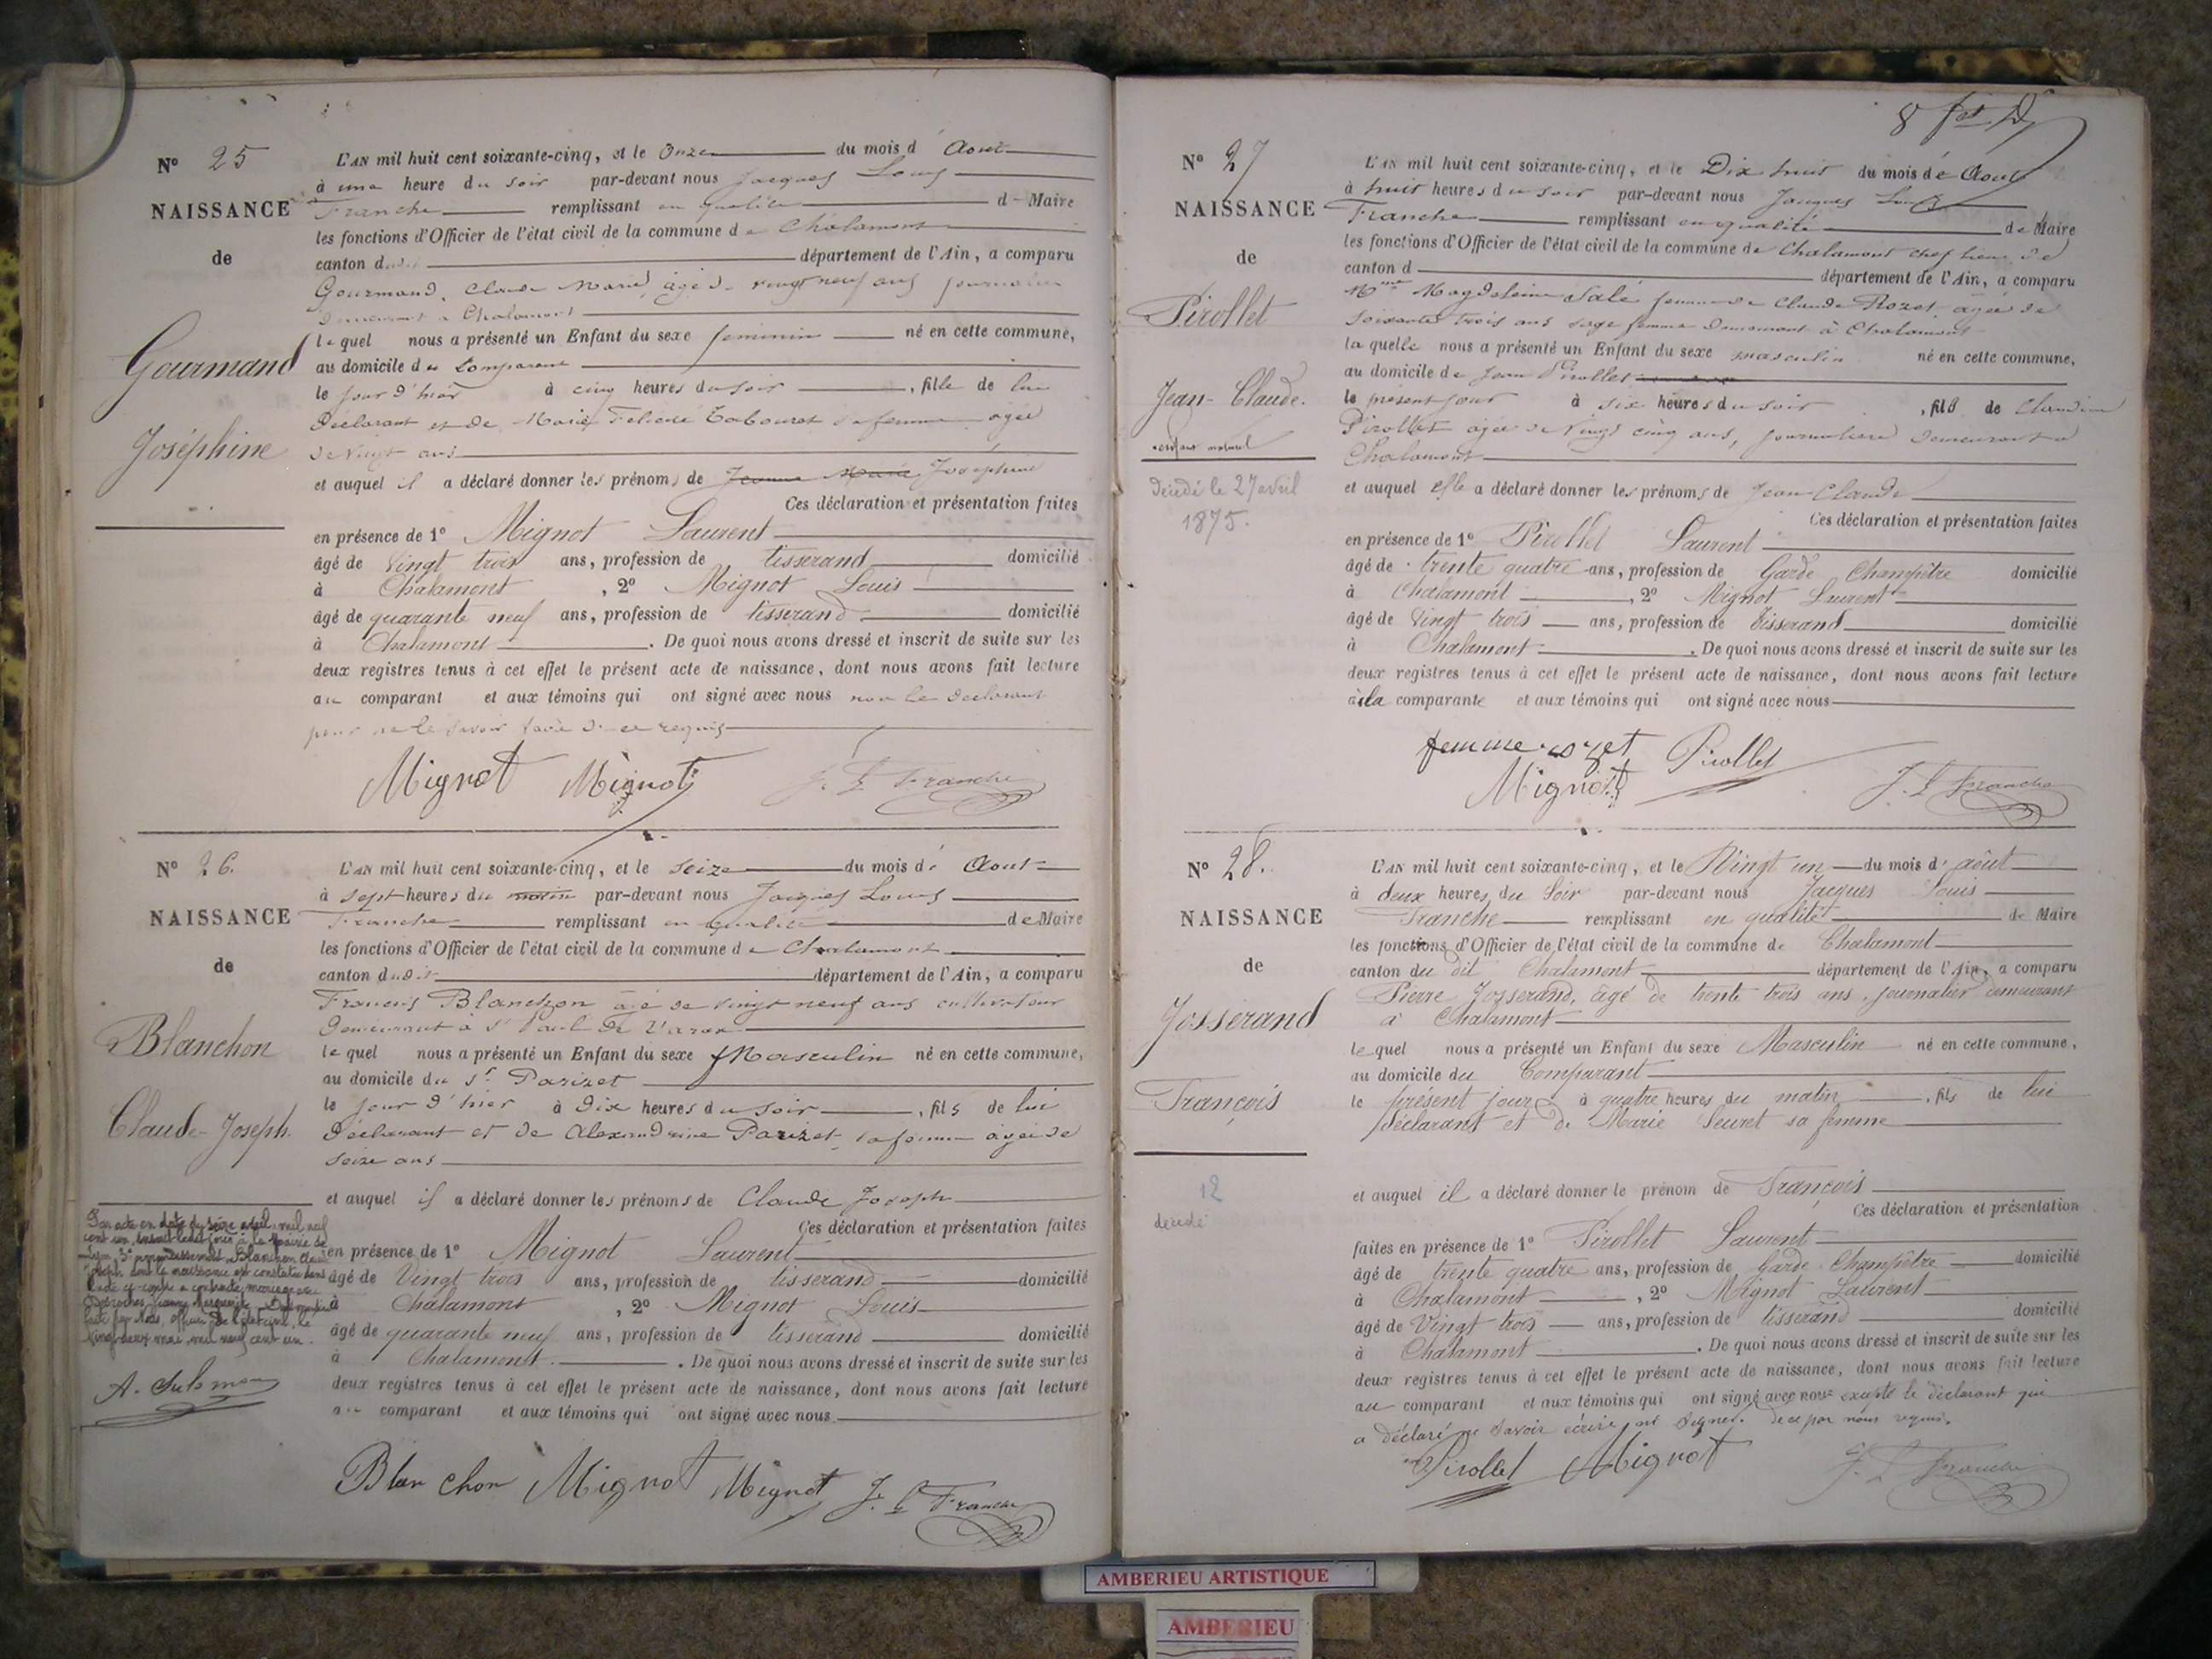 N° 25
NAISSANCE
de
Gourmand
Joséphine
L'AN mil huit cent soixante-cinq, et le Onze du mois d' Aout
à une heure du soir par-devant nous Jacques Louis
Franche remplissant en qualité d Maire
les fonctions d'Officier de l'état civil de la commune de Chalamont
canton dudit département de l'Ain, a comparu
Gourmand, Claude Marie, âgé de vingt neuf ans journalier
demeurant à Chalamont
lequel nous a présenté un Enfant du sexe feminin né en cette commune,
au domicile du Comparant
le jour d'hier à cinq heures du soir, fille de lui
Déclarant et de Marie Felicité Tabouret sa femme agée
de Vingt ans
et auquel il a déclaré donner les prénoms de Jeanne Marie Joséphine
Ces déclaration et présentation faites
en présence de 1° Mignot Laurent
âgé de Vingt trois ans, profession de tisserand domicilié
à Chalamont, 2° Mignot Louis
âgé de quarante neuf ans, profession de tisserand domicilié
à Chalamont. De quoi nous avons dressé et inscrit de suite sur les
deux registres tenus à cet effet le présent acte de naissance, dont nous avons fait lecture
au comparant et aux témoins qui ont signé avec nous non le declarant
pour ne le savoir faire de ce requis
Mignot Mignot J. L. Franche
N° 26.
NAISSANCE
de
Blanchon
Claude-Joseph.
L'AN mil huit cent soixante-cinq, et le seize du mois d' Aout
à sept heures du matin par-devant nous Jacques Louis
Franche remplissant en qualité de Maire
les fonctions d'Officier de l'état civil de la commune de Chalamont
canton dudit département de l'Ain, a comparu
Francois Blanchon âgé de vingt neuf ans cultivateur
demeurant à St Paul de Varax
lequel nous a présenté un Enfant du sexe Masculin né en cette commune,
au domicile du Sr Parizet
le jour d'hier à Dix heures du soir, fils de lui
Déclarant et de Alexandrine Parizet sa femme âgée de
seize ans
et auquel il a déclaré donner les prénoms de Claude Joseph
Ces déclaration et présentation faites
en présence de 1° Mignot Laurent
âgé de Vingt trois ans, profession de tisserand domicilié
à Chalamont, 2° Mignot Louis
âgé de quarante neuf ans, profession de tisserand domicilié
à Chalamont. De quoi nous avons dressé et inscrit de suite sur les
deux registres tenus à cet effet le présent acte de naissance, dont nous avons fait lecture
au comparant et aux témoins qui ont signé avec nous
Blanchon Mignot Mignot J. L. Franche
Par acte en date du seize avril mil neuf
cent un, à la Mairie de
Lyon, 3e arrondissement Blanchon Claude
Joseph dont la naissance est constatée dans
l'acte ci-contre a contracté mariage avec
Jeanne Marguerite
par Nous, officier de l'état civil, le
vingt deux mai mil neuf cent un.
8
N° 27
NAISSANCE
de
Pirollet
Jean-Claude.
enfant naturel
décédé le 27 avril
1875.
L'AN mil huit cent soixante-cinq, et le Dix huit du mois de Aout
à huit heures du soir par-devant nous Jacques Louis
Franche remplissant en qualité de Maire
les fonctions d'Officier de l'état civil de la commune de Chalamont chef lieu de
canton d département de l'Ain, a comparu
Mme Magdeleine Salé femme de Claude Rozet, agée de
soixante trois ans sage femme demeurant à Chalamont
laquelle nous a présenté un Enfant du sexe masculin né en cette commune,
au domicile de Jean Pirollet
le présent jour à six heures du soir, fils de Claudine
Pirollet agée de Vingt cinq ans, journalière demeurant à
Chalamont
et auquel elle a déclaré donner les prénoms de Jean Claude
Ces déclaration et présentation faites
en présence de 1° Pirollet Laurent
âgé de trente quatre ans, profession de Garde Champêtre domicilié
à Chalamont, 2° Mignot Laurent
âgé de Vingt trois ans, profession de Tisserand domicilié
à Chalamont. De quoi nous avons dressé et inscrit de suite sur les
deux registres tenus à cet effet le présent acte de naissance, dont nous avons fait lecture
à la comparante et aux témoins qui ont signé avec nous
femme rozet Pirollet
Mignot J. L. Franche
N° 28.
NAISSANCE
de
Josserand
François
12
décédé
L'AN mil huit cent soixante-cinq, et le Vingt un du mois d' août
à deux heures du Soir par-devant nous Jacques Louis
Franche remplissant en qualité de Maire
les fonctions d'Officier de l'état civil de la commune de Chalamont
canton du dit Chalamont département de l'Ain, a comparu
Pierre Josserand, âgé de trente trois ans, journalier demeurant
à Chalamont
lequel nous a présenté un Enfant du sexe Masculin né en cette commune,
au domicile du Comparant
le présent jour à quatre heures du matin, fils de lui
déclarant et de Marie Seuret sa femme
et auquel il a déclaré donner le prénom de François
Ces déclaration et présentation
faites en présence de 1° Pirollet Laurent
âgé de trente quatre ans, profession de Garde Champêtre domicilié
à Chalamont, 2° Mignot Laurent
âgé de Vingt trois ans, profession de tisserand domicilié
à Chalamont. De quoi nous avons dressé et inscrit de suite sur les
deux registres tenus à cet effet le présent acte de naissance, dont nous avons fait lecture
au comparant et aux témoins qui ont signé avec nous excepté le déclarant qui
a déclaré ne savoir écrire ni signer. de ce par nous requis.
Pirollet Mignot J. L. Franche
AMBERIEU ARTISTIQUE
AMBERIEU